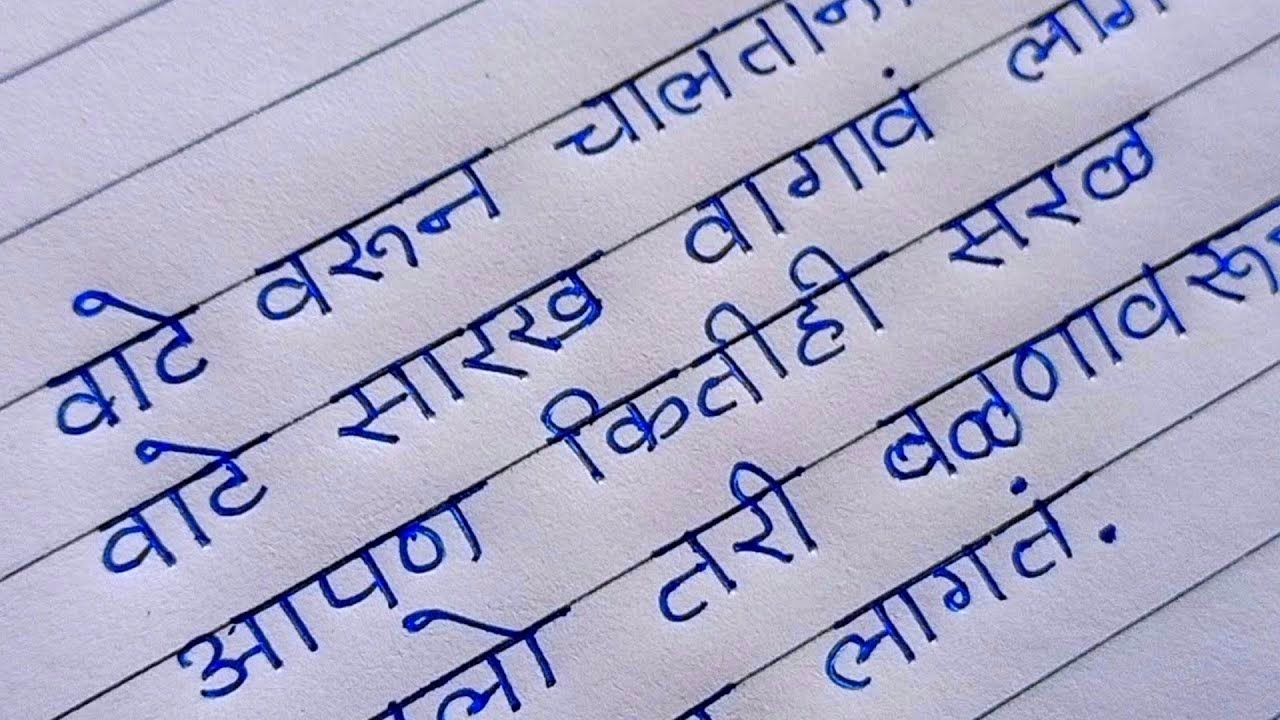 वाटे वरून चालताना
वाटे सारख वागावं लाग
आपण कितीही सरळ
लो तरी वळणावरू
लागतं.